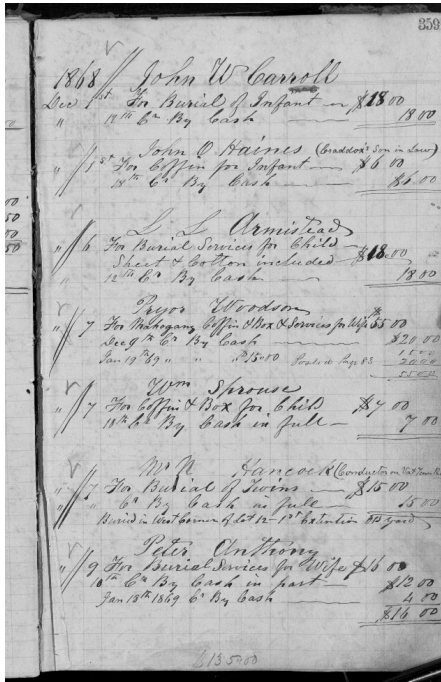 359
1868 John W Carroll
Dec 1st For Burial of Infant $18 00
" 12th Cr By Cash 18 00
John O. Haines (Craddox's Son in Law)
" 1st For Coffin for Infant $6 00
18th Cr By Cash $6 00
L L Armistead
" 6 For Burial Services for Child
Sheet & Cotton included $18 00
12th Cr By Cash 18 00
Pryor Woodson
" 7 For Mahogany Coffin & Box & Services for Wife $55 00
Dec 9th Cr By Cash $20 00
Jan 19th 69 " " $15.00 Posted Page 83 15 00
20 00
55 00
Wm Sprouse
" 7 For Coffin & Box for Child $7 00
18th Cr By Cash in full 7 00
Mr N Hancock (Conductor on
" 7 For Burial of Twins $15 00
" " Cr By Cash in full 15 00
Buried in West Corner of Lot 12 - 1st Extention Old yard
Peter Anthony
" 9 For Burial Services for Wife $16 00
10th Cr By Cash in part $12 00
Jan 13th 1869 Cr By Cash 4 00
$16 00
$135 00